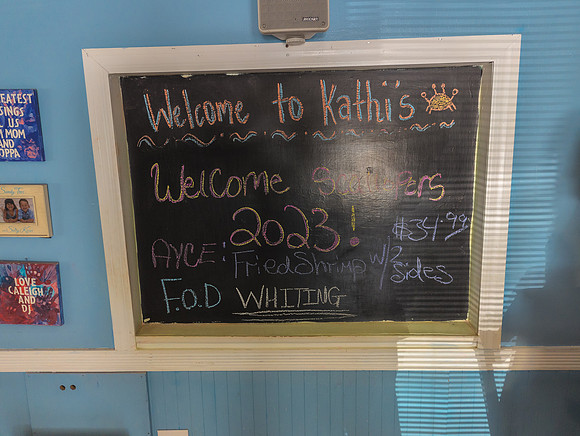 Welcome to Kathi's
Welcome
2023!
AYCE: Fried Shrimp w/2 Sides
$34.99
F.O.D WHITING
EATEST
SINGS
US
MOM
AND
OPPA
LOVE
CALEIGH
AND
DJ